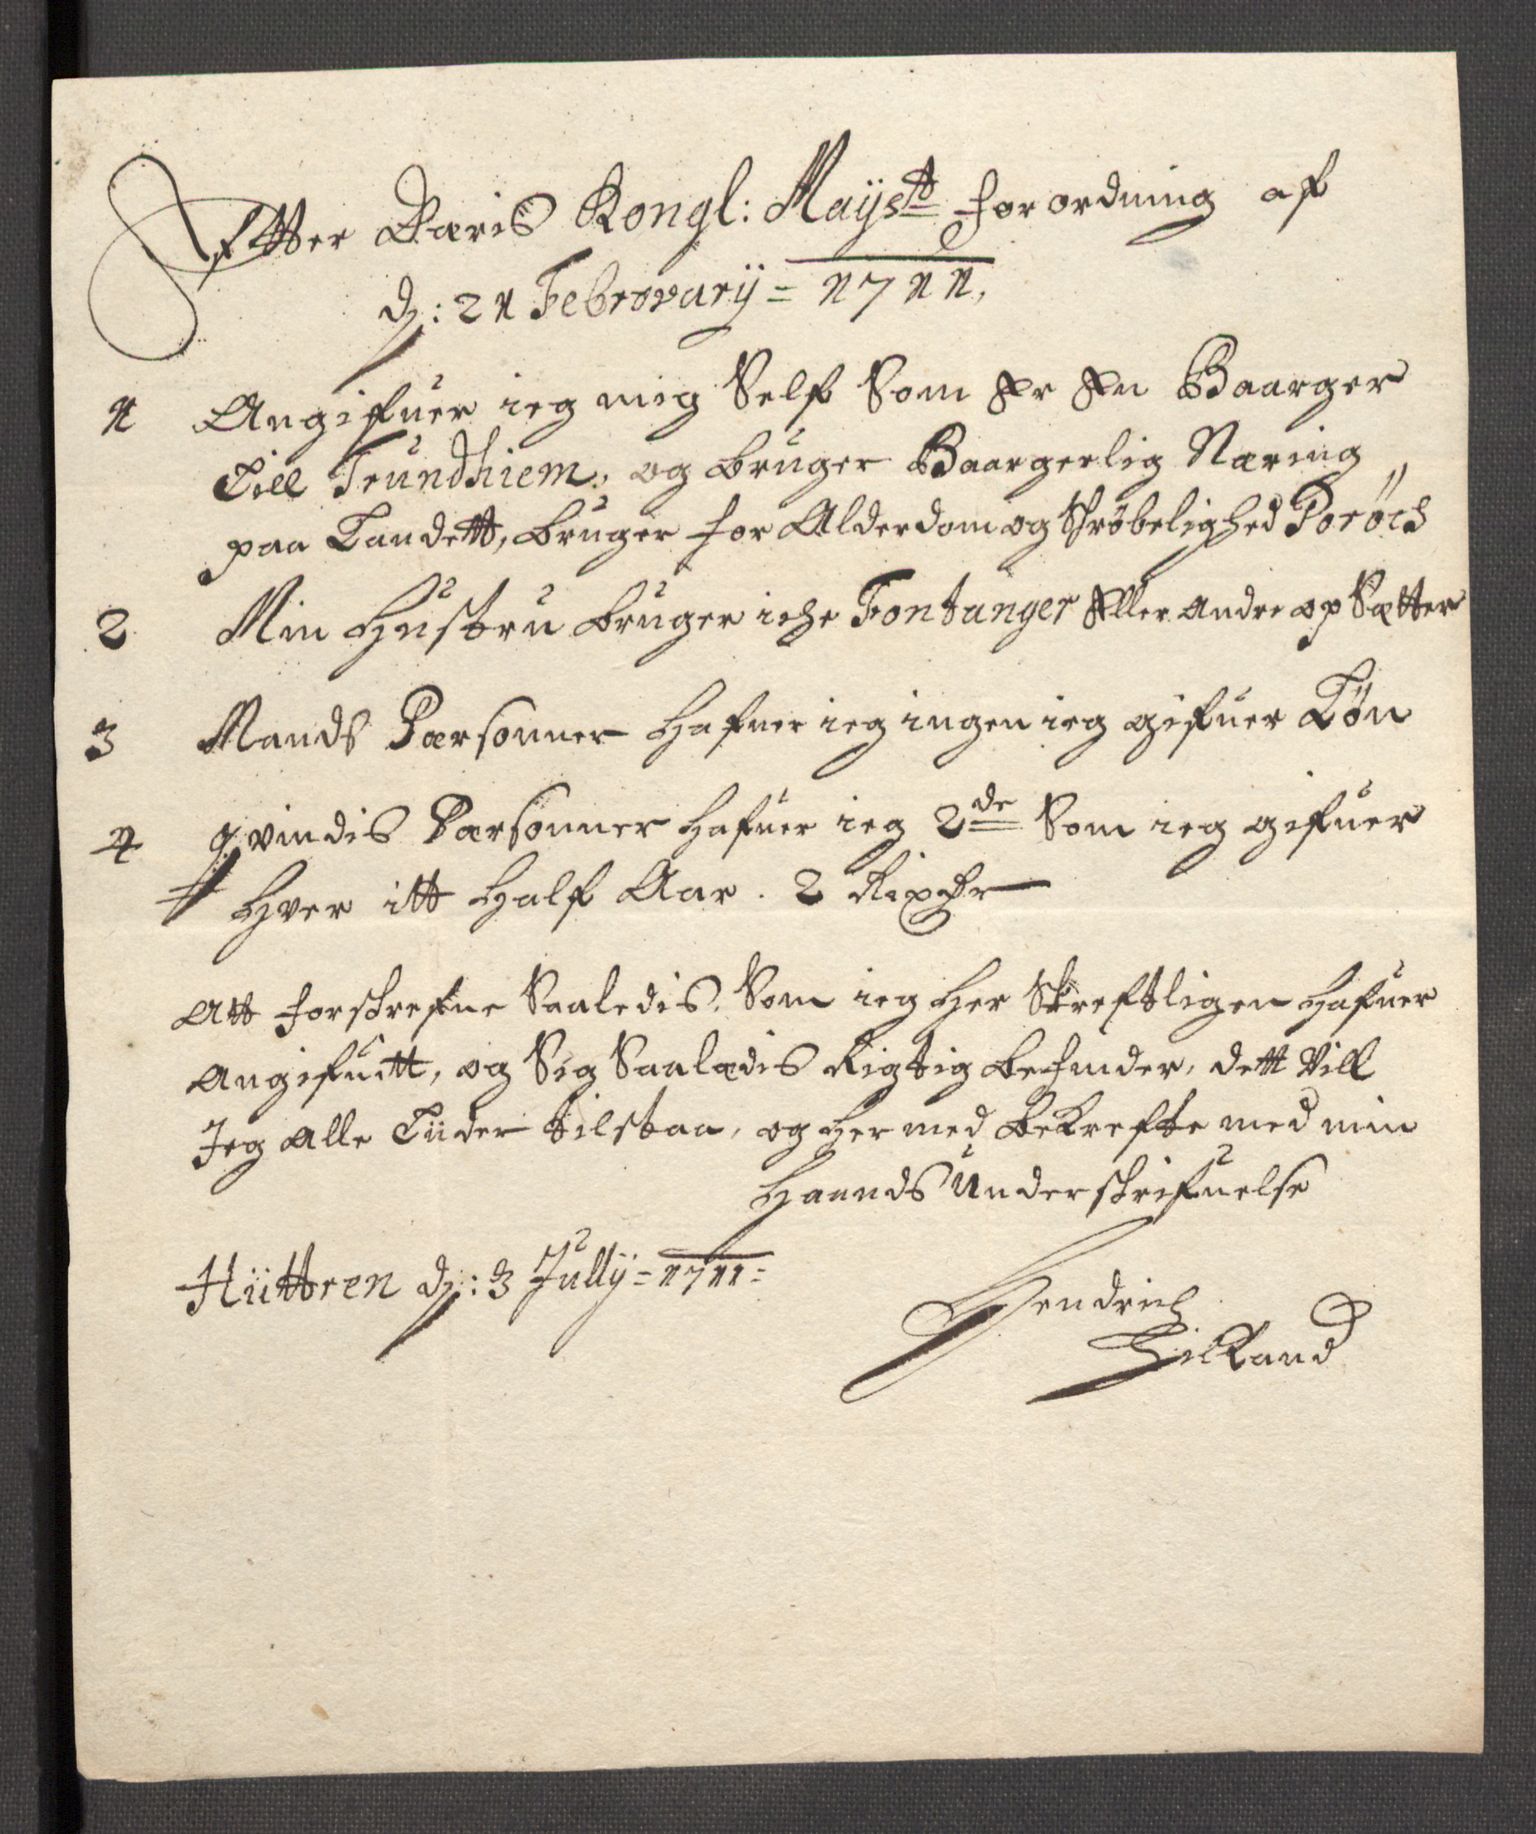 Efter Dæris Kongl: Mayst forordning af
d: 21 Februvarij = 1711,
1 Angifuer ieg mig Self Som Er En Baarger
Till Trundhiem, og bruger Baargerlig Næring
paa Landett, bruger for Alderdom og Skrøbelighed Poröch
2 Min Hustru bruger iche Fontanger Eller andre op Sætter
3 Mands Parsonner hafuer ieg ingen ieg gifuer Løn
4 qvindis Parsonner hafuer ieg 2de Som ieg gifuer
hver itt half Aar. 2 Rixdr
Att forskrefne Saaledis, Som ieg her Skreftligen hafuer
Angifuitt, og Sig Saaledis Rigtig befinder, dett Vill
Jeg Alle Tiider tilstaa, og her med bekrefte med min
Haands Underskrifuelse
Hüttren d: 3 Jully = 1711 =
Hendrich